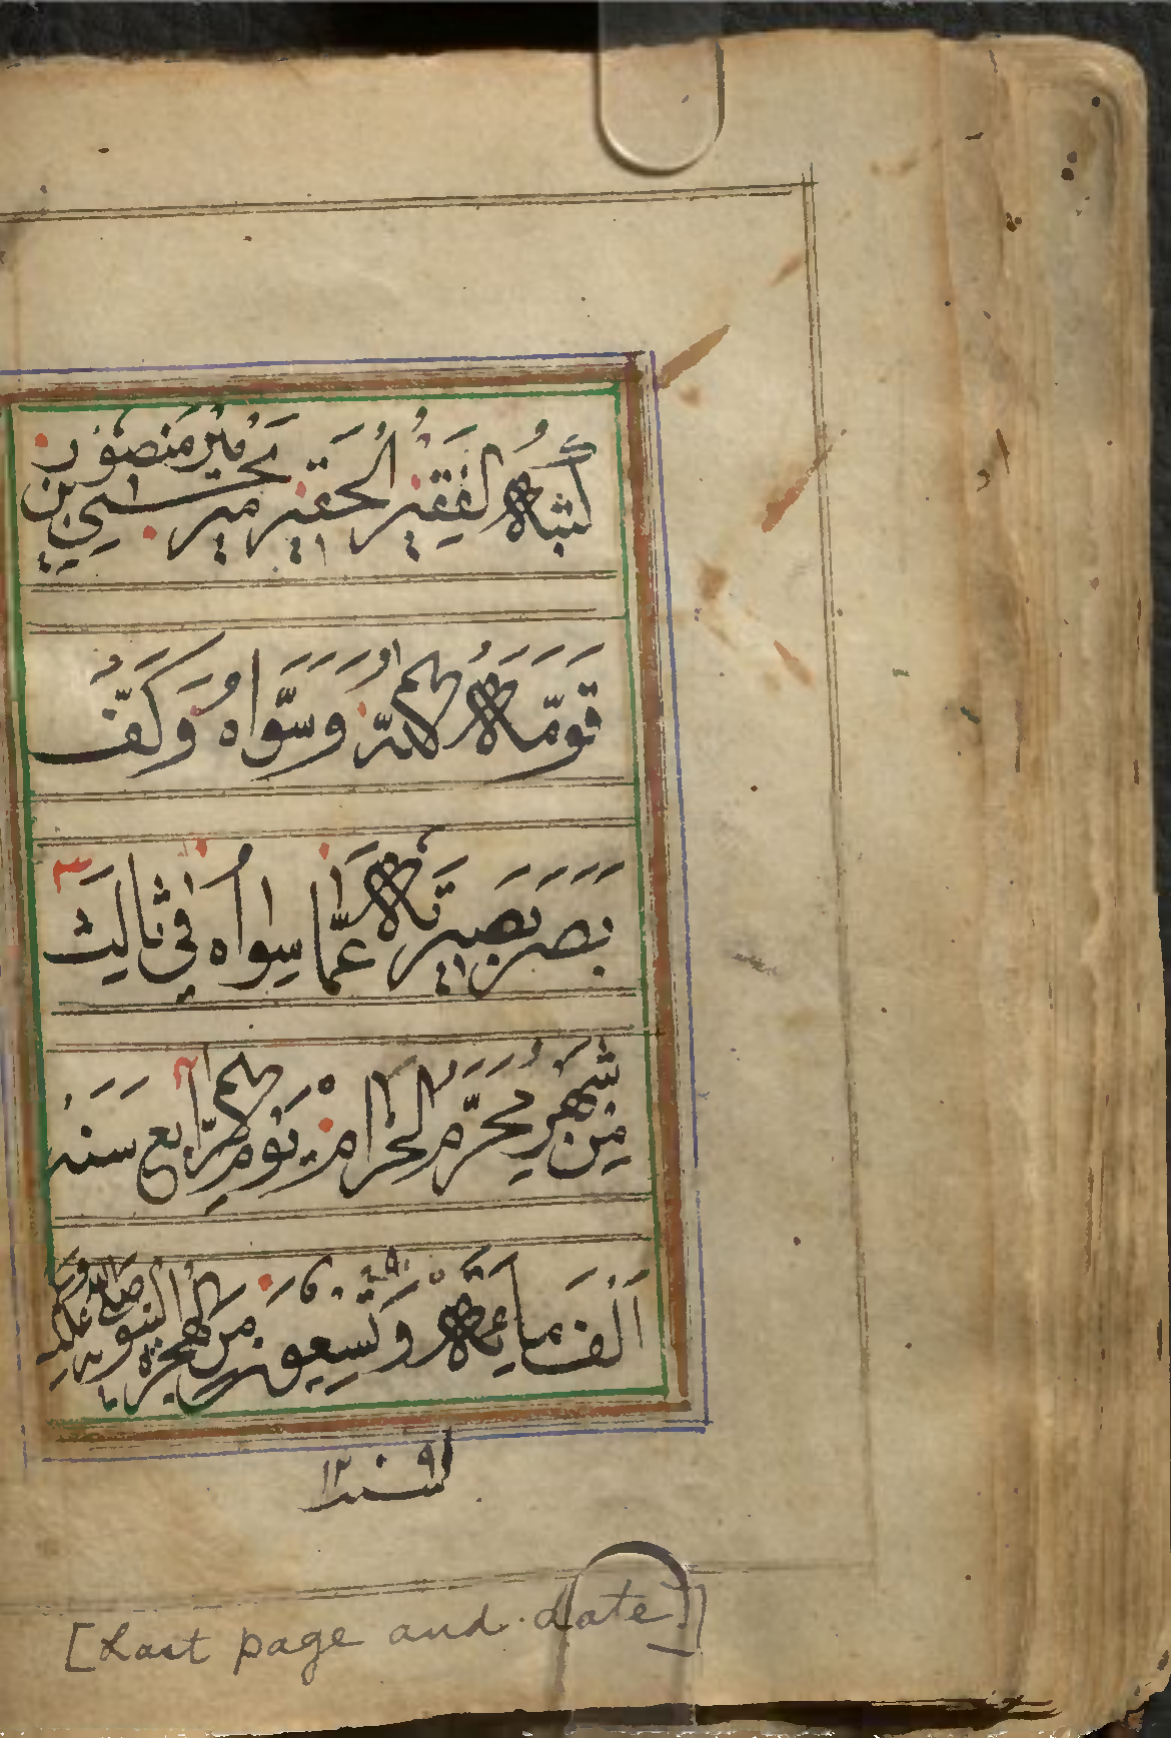 كَتَبَهُ الفَقِيْرُ الحَقِيْرُ مير يحيى بن
مير منصور
قَوَّمَهُ اللهُ وَسَوَّاهُ وَكَفَّ
بَصَرَ بَصِيرَتِهِ عَمَّا سِواهُ في ثالِث
مِن شَهْرِ مُحَرَّم الحَرَام مِنْ يَوم الرّابع سنه
الف مائة وتسعون من الهجرة النبوية صلى الله عليه
سنه
[Last page and date]